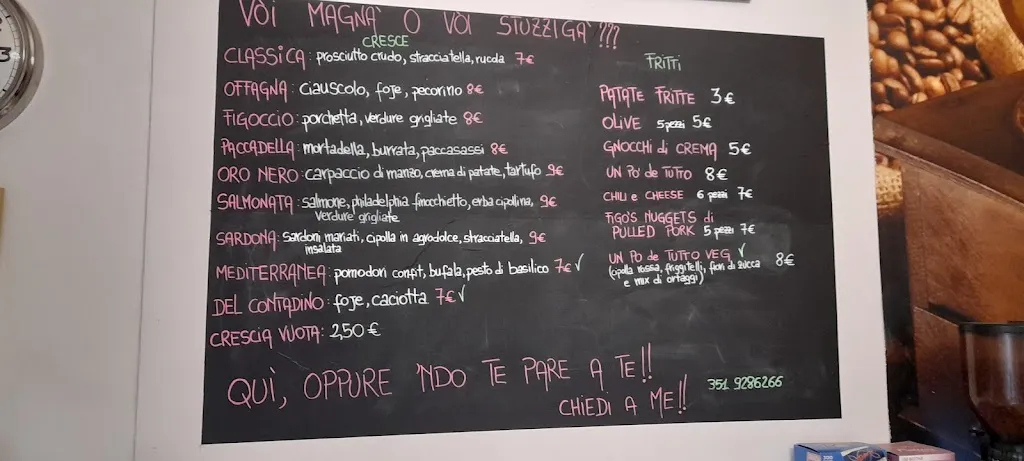 VOI MAGNA' O VOI STUZZIGA'???
CRESCE
CLASSICA: prosciutto crudo, stracciatella, rucola 7€
OFFAGNA: ciauscolo, foje, pecorino 8€
FIGOCCIO: porchetta, verdure grigliate 8€
PACCADELLA: mortadella, burrata, paccasassi 8€
ORO NERO: carpaccio di manzo, crema di patate, tartufo 9€
SALMONATA: salmone, philadelphia finocchietto, erba cipollina, 9€
verdure grigliate
SARDONA: sardoni mariati, cipolla in agrodolce, stracciatella, 9€
insalata
MEDITERRANEA: pomodori confit, bufala, pesto di basilico 7€ √
DEL CONTADINO: foje, caciotta 7€ √
CRESCIA VUOTA: 2,50 €
FRITTI
PATATE FRITTE 3€
OLIVE 5 pezzi 5€
GNOCCHI di CREMA 5€
UN PO' de TUTTO 8€
CHILI e CHEESE 6 pezzi 7€
FIGO'S NUGGETS di
PULLED PORK 5 pezzi 7€
UN PO de TUTTO VEG √
(cipolla rossa, friggitelli, fiori di zucca 8€
e mix di ortaggi)
QUÌ, OPPURE 'NDO TE PARE A TE!!
CHIEDI A ME!!
351 9286266